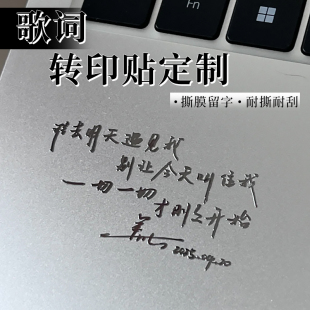 Fn
歌词
转印贴定制
·撕膜留字·耐撕耐刮
我去明天遇见我
别让今天叫住我
一切一切
才刚刚开始
2025.09.20